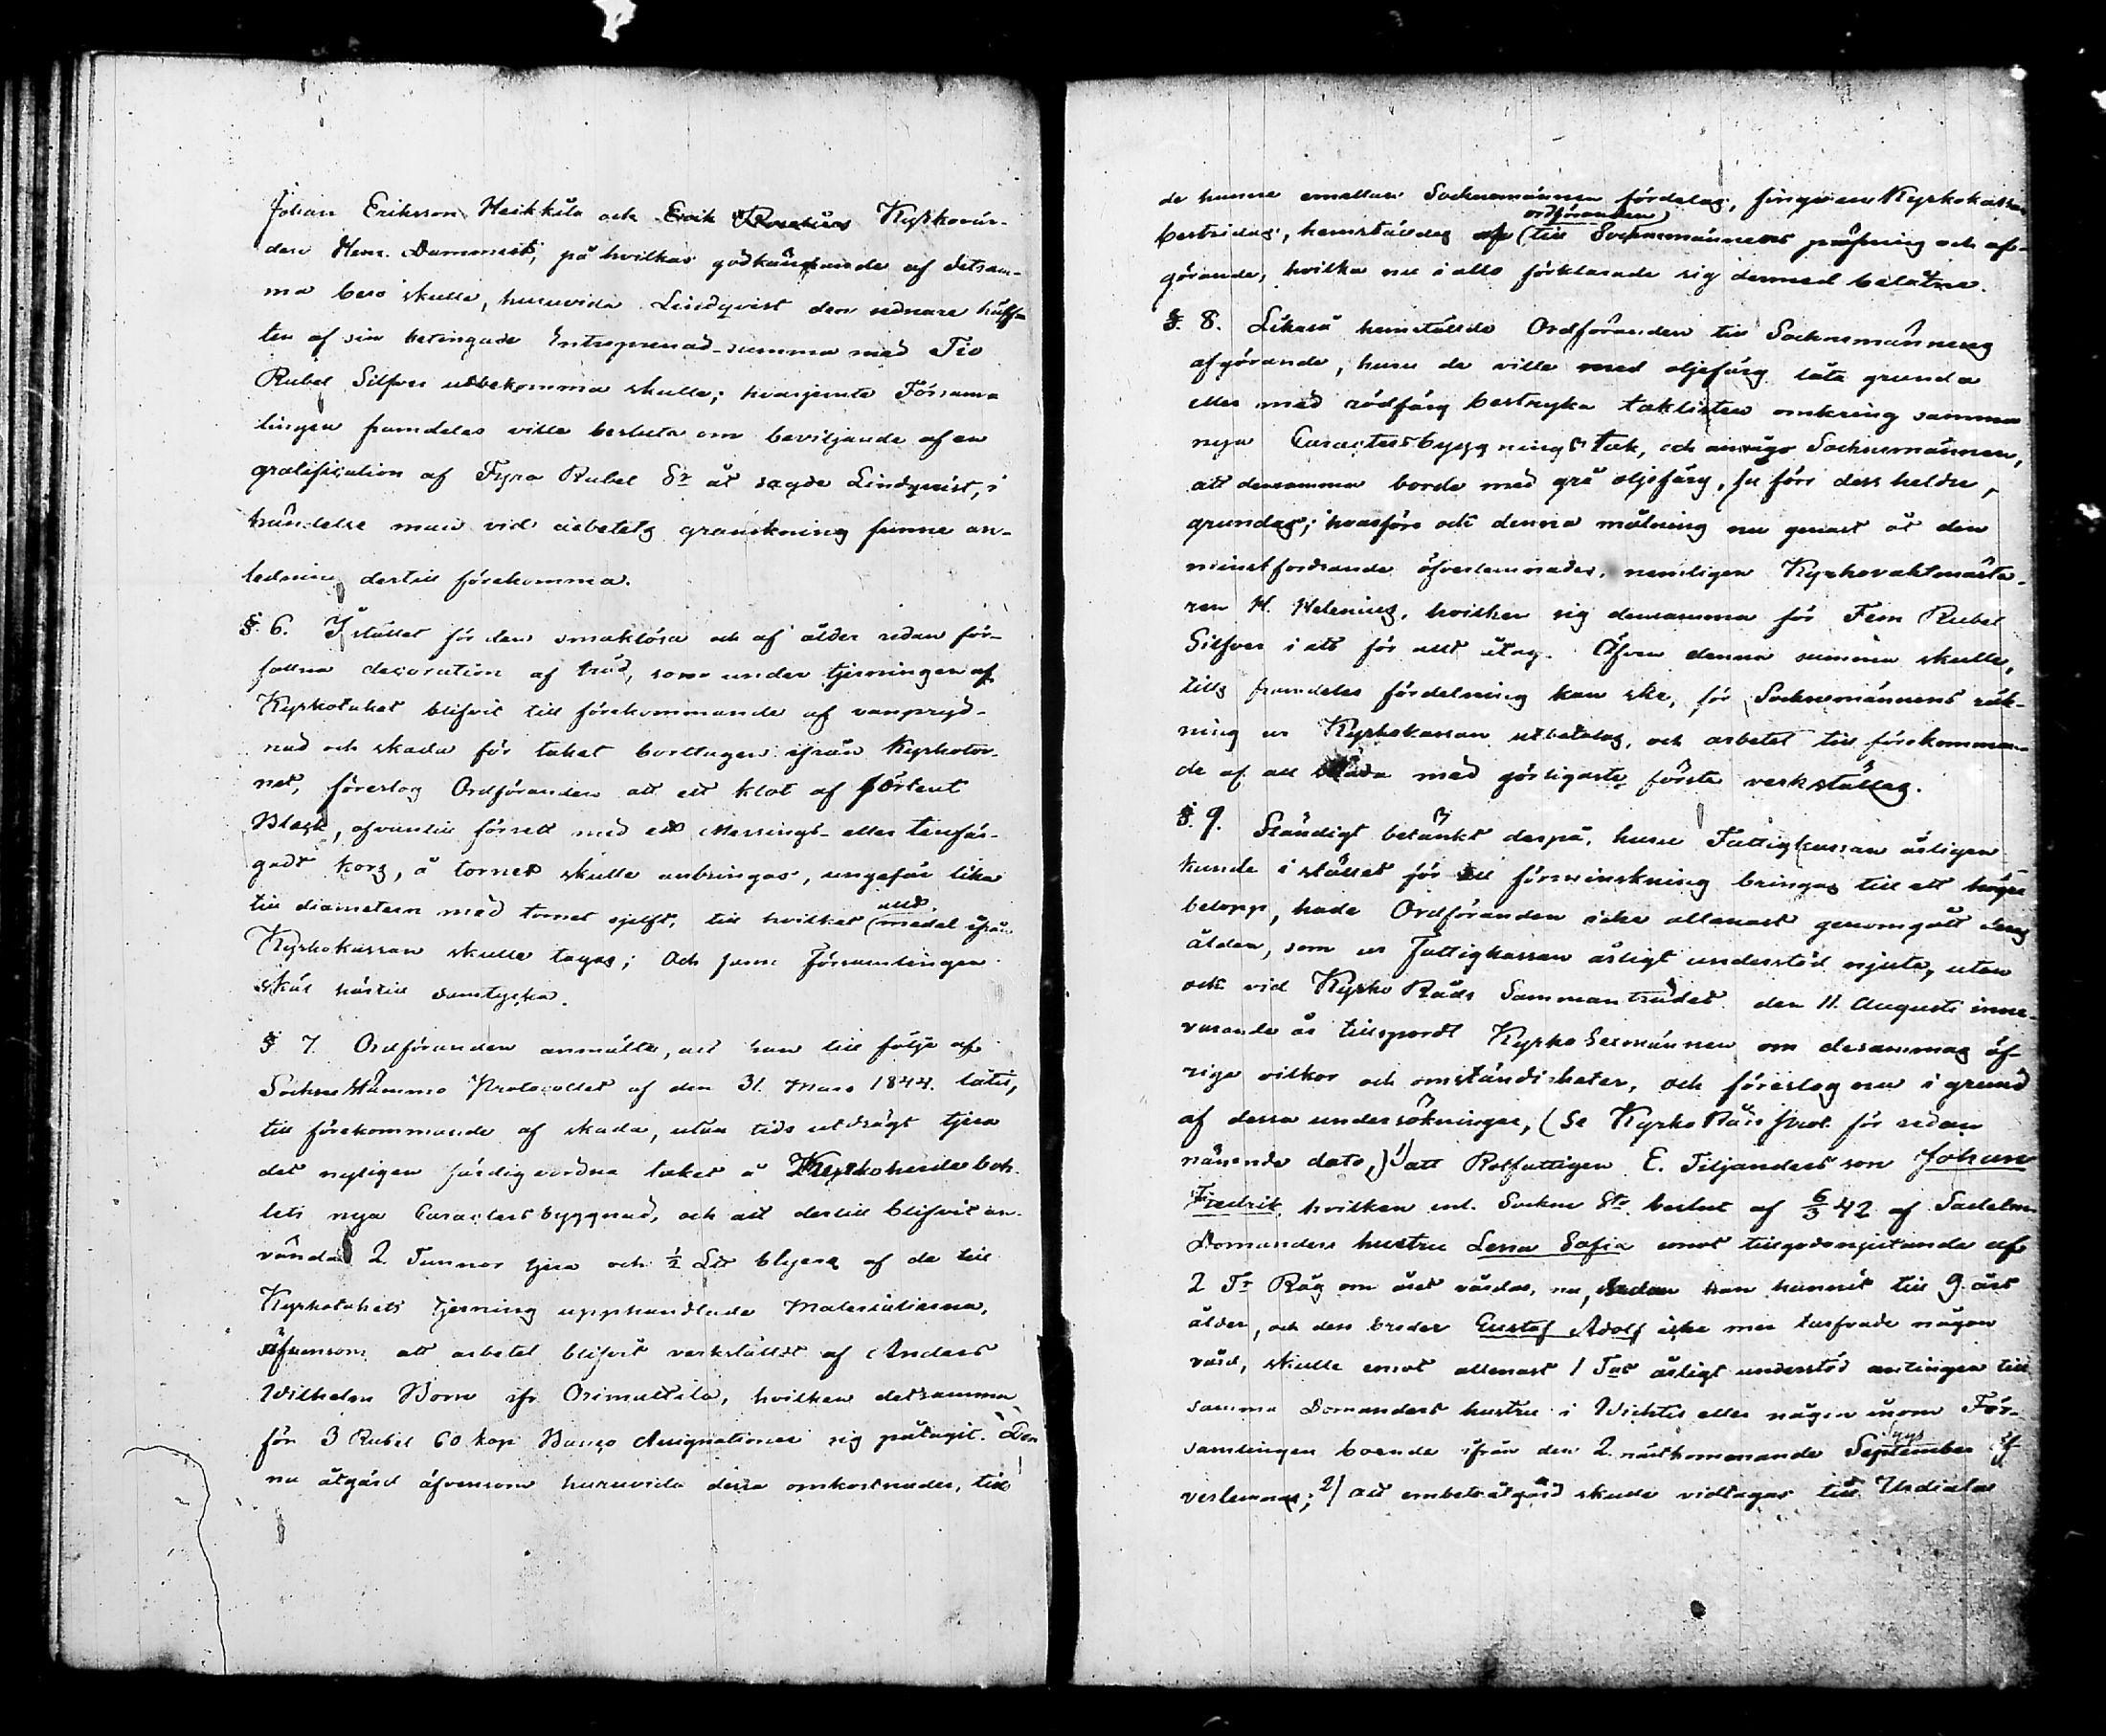 Johan Eriksson Heikkilä och Kyrkovär-
den Henr. Dammert, på hvilkas godkännande af detsam-
ma bero skulle, huruvida Lindqvist den sednare hälf-
ten af sin betingade Entreprenad-summa med Tio
Rubel Silfver utbekomma skulle; hvarjemte Försam-
lingen framdeles ville besluta om beviljande af en
gratification af Fyra Rubel Sr åt sagde Lindqvist, i
händelse man vid arbetets granskning funne an-
ledning dertill förekomma.
§ 6. I stället för den smaklösa och af ålder redan för-
fallna decoration af träd, som under tjerningen af
Kyrkotaket blifvit till förekommande af vanpryd-
nad och skada för taket borttagen ifrån Kyrkotor-
net, föreslog Ordföranden att ett klot af förtent
Bleck, ofvantill försett med ett Messings- eller tenfär-
gadt kors, å tornet skulle anbringas, ungefär lika
till diametern med tornet sjelft, till hvilket medel ifrån
Kyrkokassan skulle tagas; Och fann Församlingen
skäl härtill samtycka.
§ 7. Ordföranden anmälte, att han till följe af
SockneStämmo Protocollet af den 31. Mars 1844. låtit,
till förekommande af skada, utan tids utdrägt tjera
det nyligen färdigvordna taket å Kyrkoherdeboh-
lets nya Caractersbyggnad, och att dertill blifvit an-
vända 2 Tunnor tjera och ½ blyerz af de till
Kyrkotakets tjerning upphandlade Materialierna,
äfvensom att arbetet blifvit verkställdt af Anders
Wilhelm Born ifr Orimattila, hvilken detsamma
för 3 Rubel 60 kop Banco Assignationer sig påtagit. Den-
na åtgärd äfvensom huruvida dessa omkostnader, till
de hunne emellan Socknemännen fördelas, finge en Kyrkokassan
bestridas, hemställdes af
ordföranden
till Socknemännens pröfning och af-
görande, hvilka nu i allo förklarade sig dermed belåtne.
§. 8. Likaså hemställde Ordföranden till Socknemännens
afgörande, huru de ville med oljefärg låta grunda
eller med rödfärg bestryka taklisten omkring samma
nya Caractersbyggnings tak, och ansågo Socknemännen,
att densamma borde med grå oljefärg, ju förr dess heldre,
grundas; hvarföre och denna målning nu genast åt den
minstfordrande öfverlemnades, nemligen Kyrkovaktmästa-
ren H. Helenius, hvilken sig densamma för Fem Rubel
Silfver i ett för allt åtog. Äfven denna summa skulle,
tills framdeles fördelning kan ske, för Socknemännens räk-
ning ur Kyrkokassan utbetalas, och arbetet till förekomman-
de af all skada med görligaste första verkställas.
§. 9. Ständigt betänkt derpå, huru Fattigkassan årligen
kunde i stället för till förminskning bringas till ett högre
belopp, hade Ordföranden icke allenast genomgått deras
ålder, som ur Fattigkassan årligt understöd njuta, utan
ock vid Kyrko Råds Sammanträdet den 11. Augusti inne-
varande år tillspordt Kyrko Sexmännen om desammas öf-
riga vilkor och omständigheter, och föreslog nu i grund
af dessa undersökningar, (Se Kyrko Råds Prot. för redan
nämnde dato,) 1) att Rotfattigen E. Tiljanders son Johan
Fredrik, hvilken enl. Sockne St. beslut af 6/3 42 af Sadelm.
Domanders hustru Lena Sofia emot tillgodonjutande af
2 Tr Råg om året vårdas, nu, sedan han hunnit till 9 års
ålder, och dess broder Gustaf Adolf icke mer tarfvade någon
vård, skulle emot allenast 1 T:s årligt understöd antingen till
samma Domanders hustru i Wichtis eller någon inom För-
samlingen boende ifrån den 2. nästkommande September öf-
verlemnas; 2) att embetsåtgärd skulle vidtagas till Urdiala